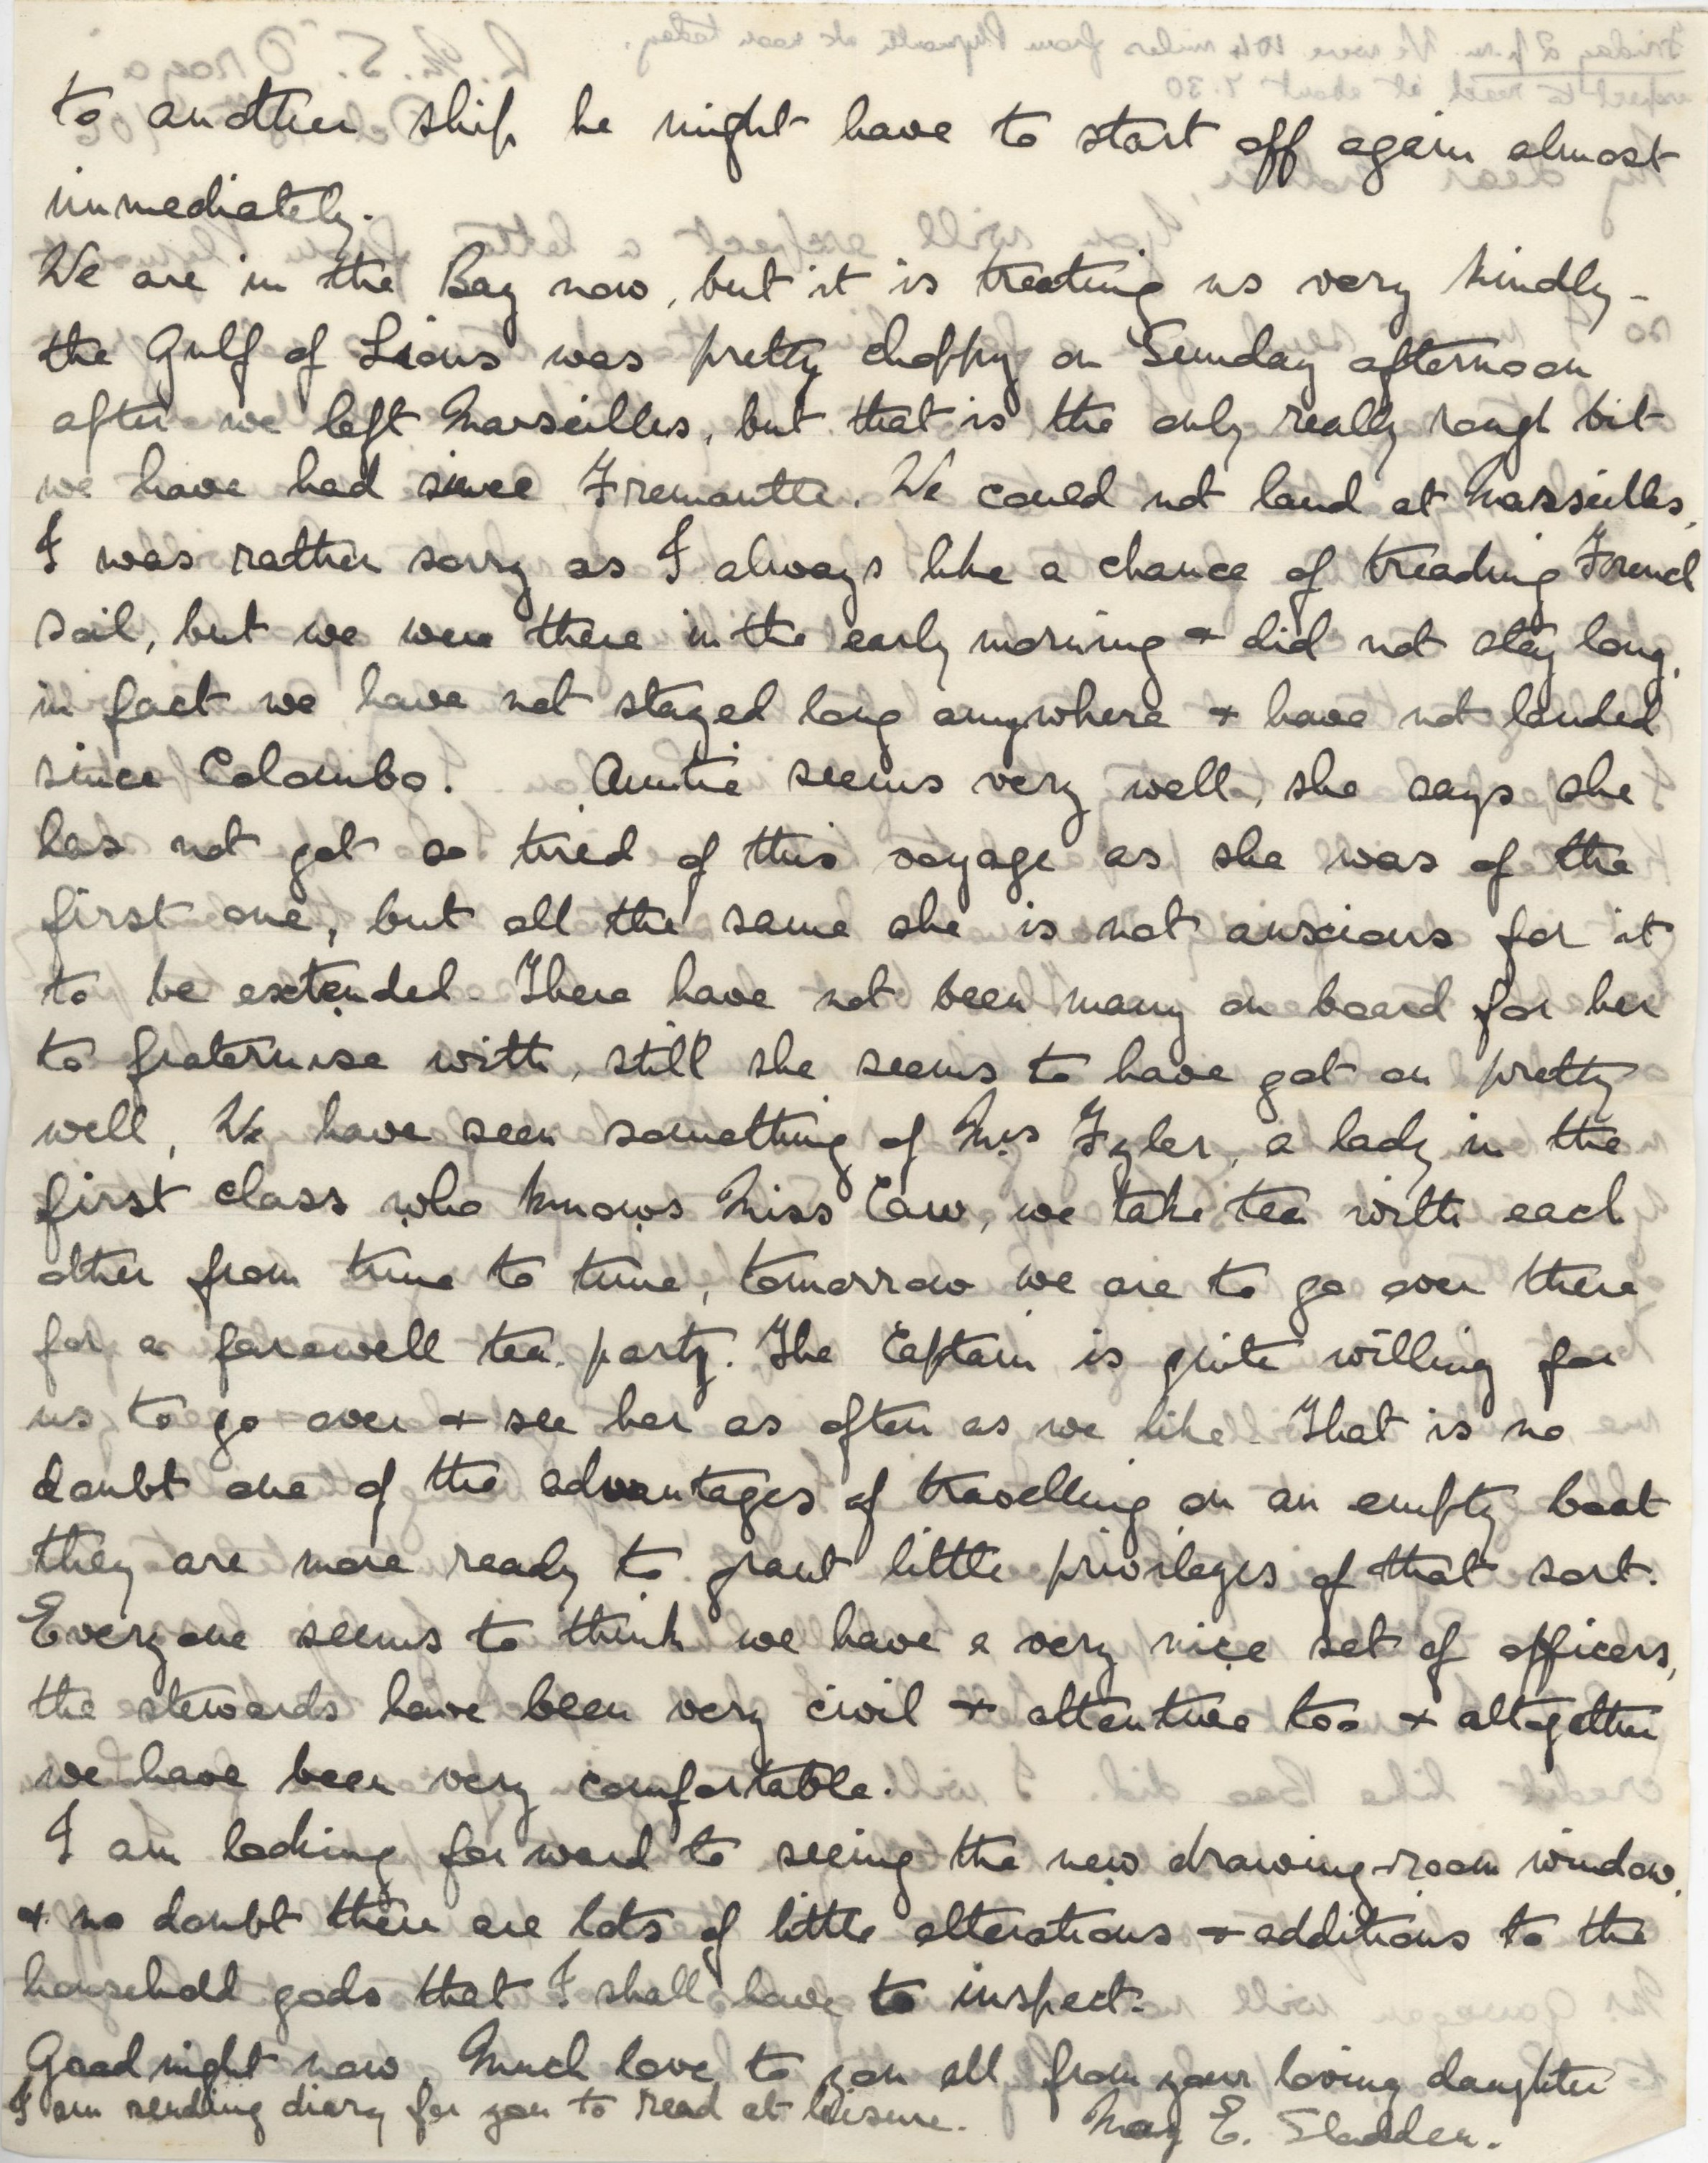 to another ship he might have to start off again almost
immediately.
We are in the Bay now, but it is treating us very kindly -
the Gulf of Lions was pretty choppy on Sunday afternoon
after we left Marseilles, but that is the only really rough bit
we have had since Fremantle. We could not land at Marseilles,
I was rather sorry as I always like a chance of treading French
soil, but we were there in the early morning & did not stay long,
in fact we have not stayed long anywhere & have not landed
since Colombo. Auntie seems very well, she says she
has not got so tired of this voyage as she was of the
first one, but all the same she is not anxious for it
to be extended. There have not been many on board for her
to fraternise with, still she seems to have got on pretty
well, We have seen something of Mrs Fyler, a lady in the
first class who knows Miss Caw, we take tea with each
other from time to time, tomorrow we are to go over there
for a farewell tea. party. The Captain is quite willing for
us to go over & see her as often as we like. That is no
doubt one of the advantages of travelling on an empty boat
they are more ready to grant little privileges of that sort.
Everyone seems to think we have a very nice set of officers,
the stewards have been very civil & attentive too & altogether
we have been very comfortable.
I am looking forward to seeing the new drawing-room window,
& no doubt there are lots of little alterations & additions to the
household gods that I shall have to inspect.
Good night now, Much love to you all from your loving daughter
I am sending diary for you to read at leisure. May E. Sladden.